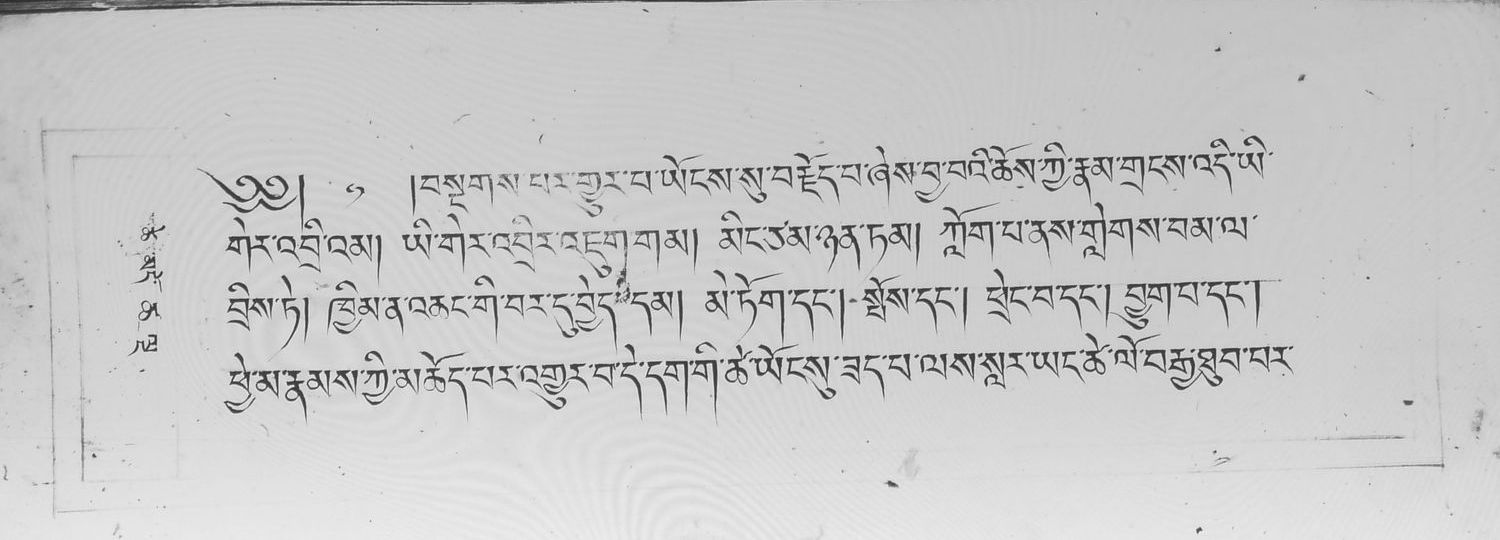 ༄༅། ༡ །བསྔགས་པར་གྱུར་པ་ཡོངས་སུ་བརྗོད་པ་ཞེས་བྱ་བའི་ཆོས་ཀྱི་རྣམ་གྲངས་འདི་ཡི་
གེར་འབྲི་འམ། ཡི་གེར་འབྲིར་འཇུག་གམ། མིང་ཙམ་ཉན་ཏམ། ཀློག་པ་ནས་གླེགས་བམ་ལ་
བྲིས་ཏེ། ཁྱིམ་ན་འཆང་གི་བར་དུ་བྱེད་དམ། མེ་ཏོག་དང་། སྤོས་དང་། ཕྲེང་བ་དང་། བྱུག་པ་དང་།
ཕྱེ་མ་རྣམས་ཀྱི་མཆོད་པར་འགྱུར་བ་དེ་དག་གི་ཚེ་ཡོངསུ་ཟད་པ་ལས་སླར་ཡང་ཚེ་ལོ་བརྒྱ་ཐུབ་པར་